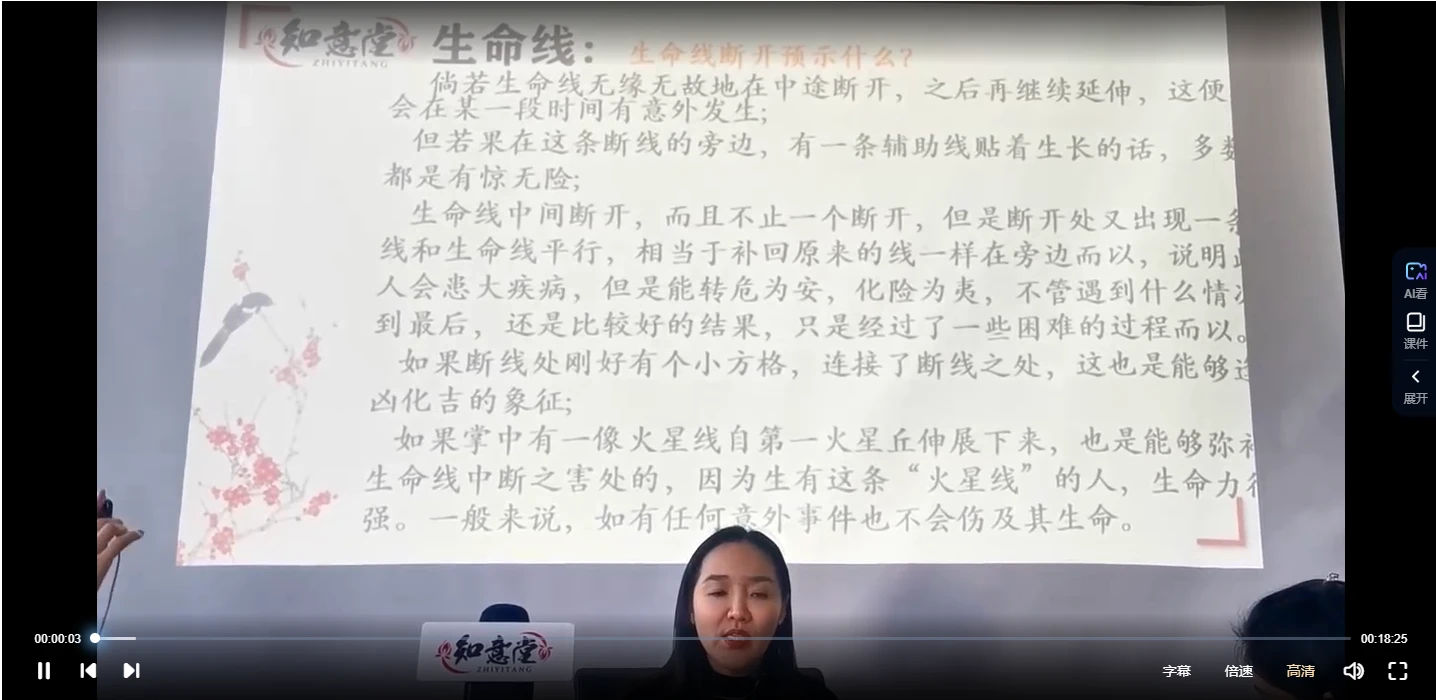 知意堂
ZHIYITANG
生命线：
生命线断开预示什么？
倘若生命线无缘无故地在中途断开，之后再继续延伸，这便
会在某一段时间有意外发生;
但若果在这条断线的旁边，有一条辅助线贴着生长的话，多数
都是有惊无险;
生命线中间断开，而且不止一个断开，但是断开处又出现一条
线和生命线平行，相当于补回原来的线一样在旁边而以，说明
人会患大疾病，但是能转危为安，化险为夷，不管遇到什么情况
到最后，还是比较好的结果，只是经过了一些困难的过程而以。
如果断线处刚好有个小方格，连接了断线之处，这也是能够
凶化吉的象征;
如果掌中有一像火星线自第一火星丘伸展下来，也是能够弥补
生命线中断之害处的，因为生有这条“火星线”的人，生命力
强。一般来说，如有任何意外事件也不会伤及其生命。
AI看
课件
展开
知意堂
ZHIYITANG
00:00:03
00:18:25
字幕
倍速
高清